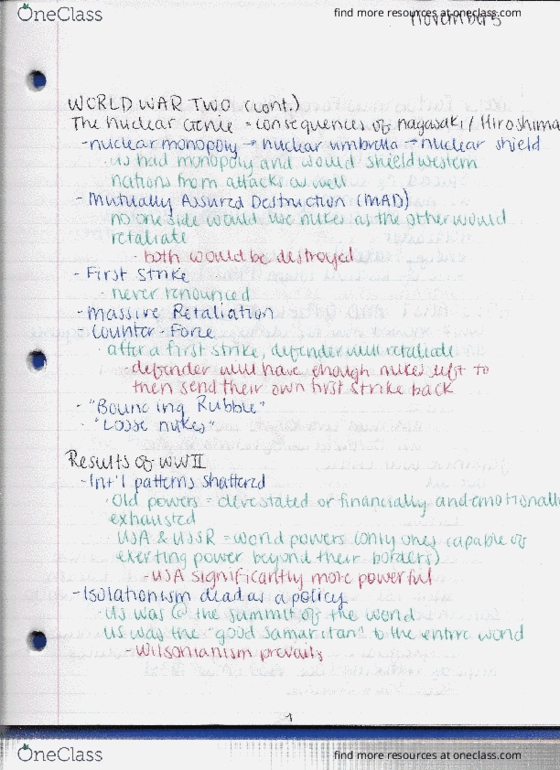 OneClass
find more resources at oneclass.com
November 5
WORLD WAR TWO (cont.)
The Nuclear Genie = consequences of Nagasaki / Hiroshima
- nuclear monopoly → nuclear umbrella → nuclear shield
· US had monopoly and would shield western
nations from attacks as well
- Mutually Assured Destruction (MAD)
· no one side would use nukes as the other would
retaliate
- both would be destroyed
- First Strike
· never renounced
- Massive Retaliation
- Counter-Force
· after a first strike, defender will retaliate
- defender will have enough nukes left to
then send their own first strike back
- "Bouncing Rubble"
- "Loose nukes"
Results of WWII
- Int'l patterns shattered
· Old powers = devestated or financially and emotionally
exhausted
· USA & USSR = world powers (only ones capable of
exerting power beyond their borders)
- USA significantly more powerful
- Isolationism dead as a policy
· US was @ the summit of the world
· US was the "good samaritan" to the entire world
- Wilsonianism prevails
OneClass
find more resources at oneclass.com